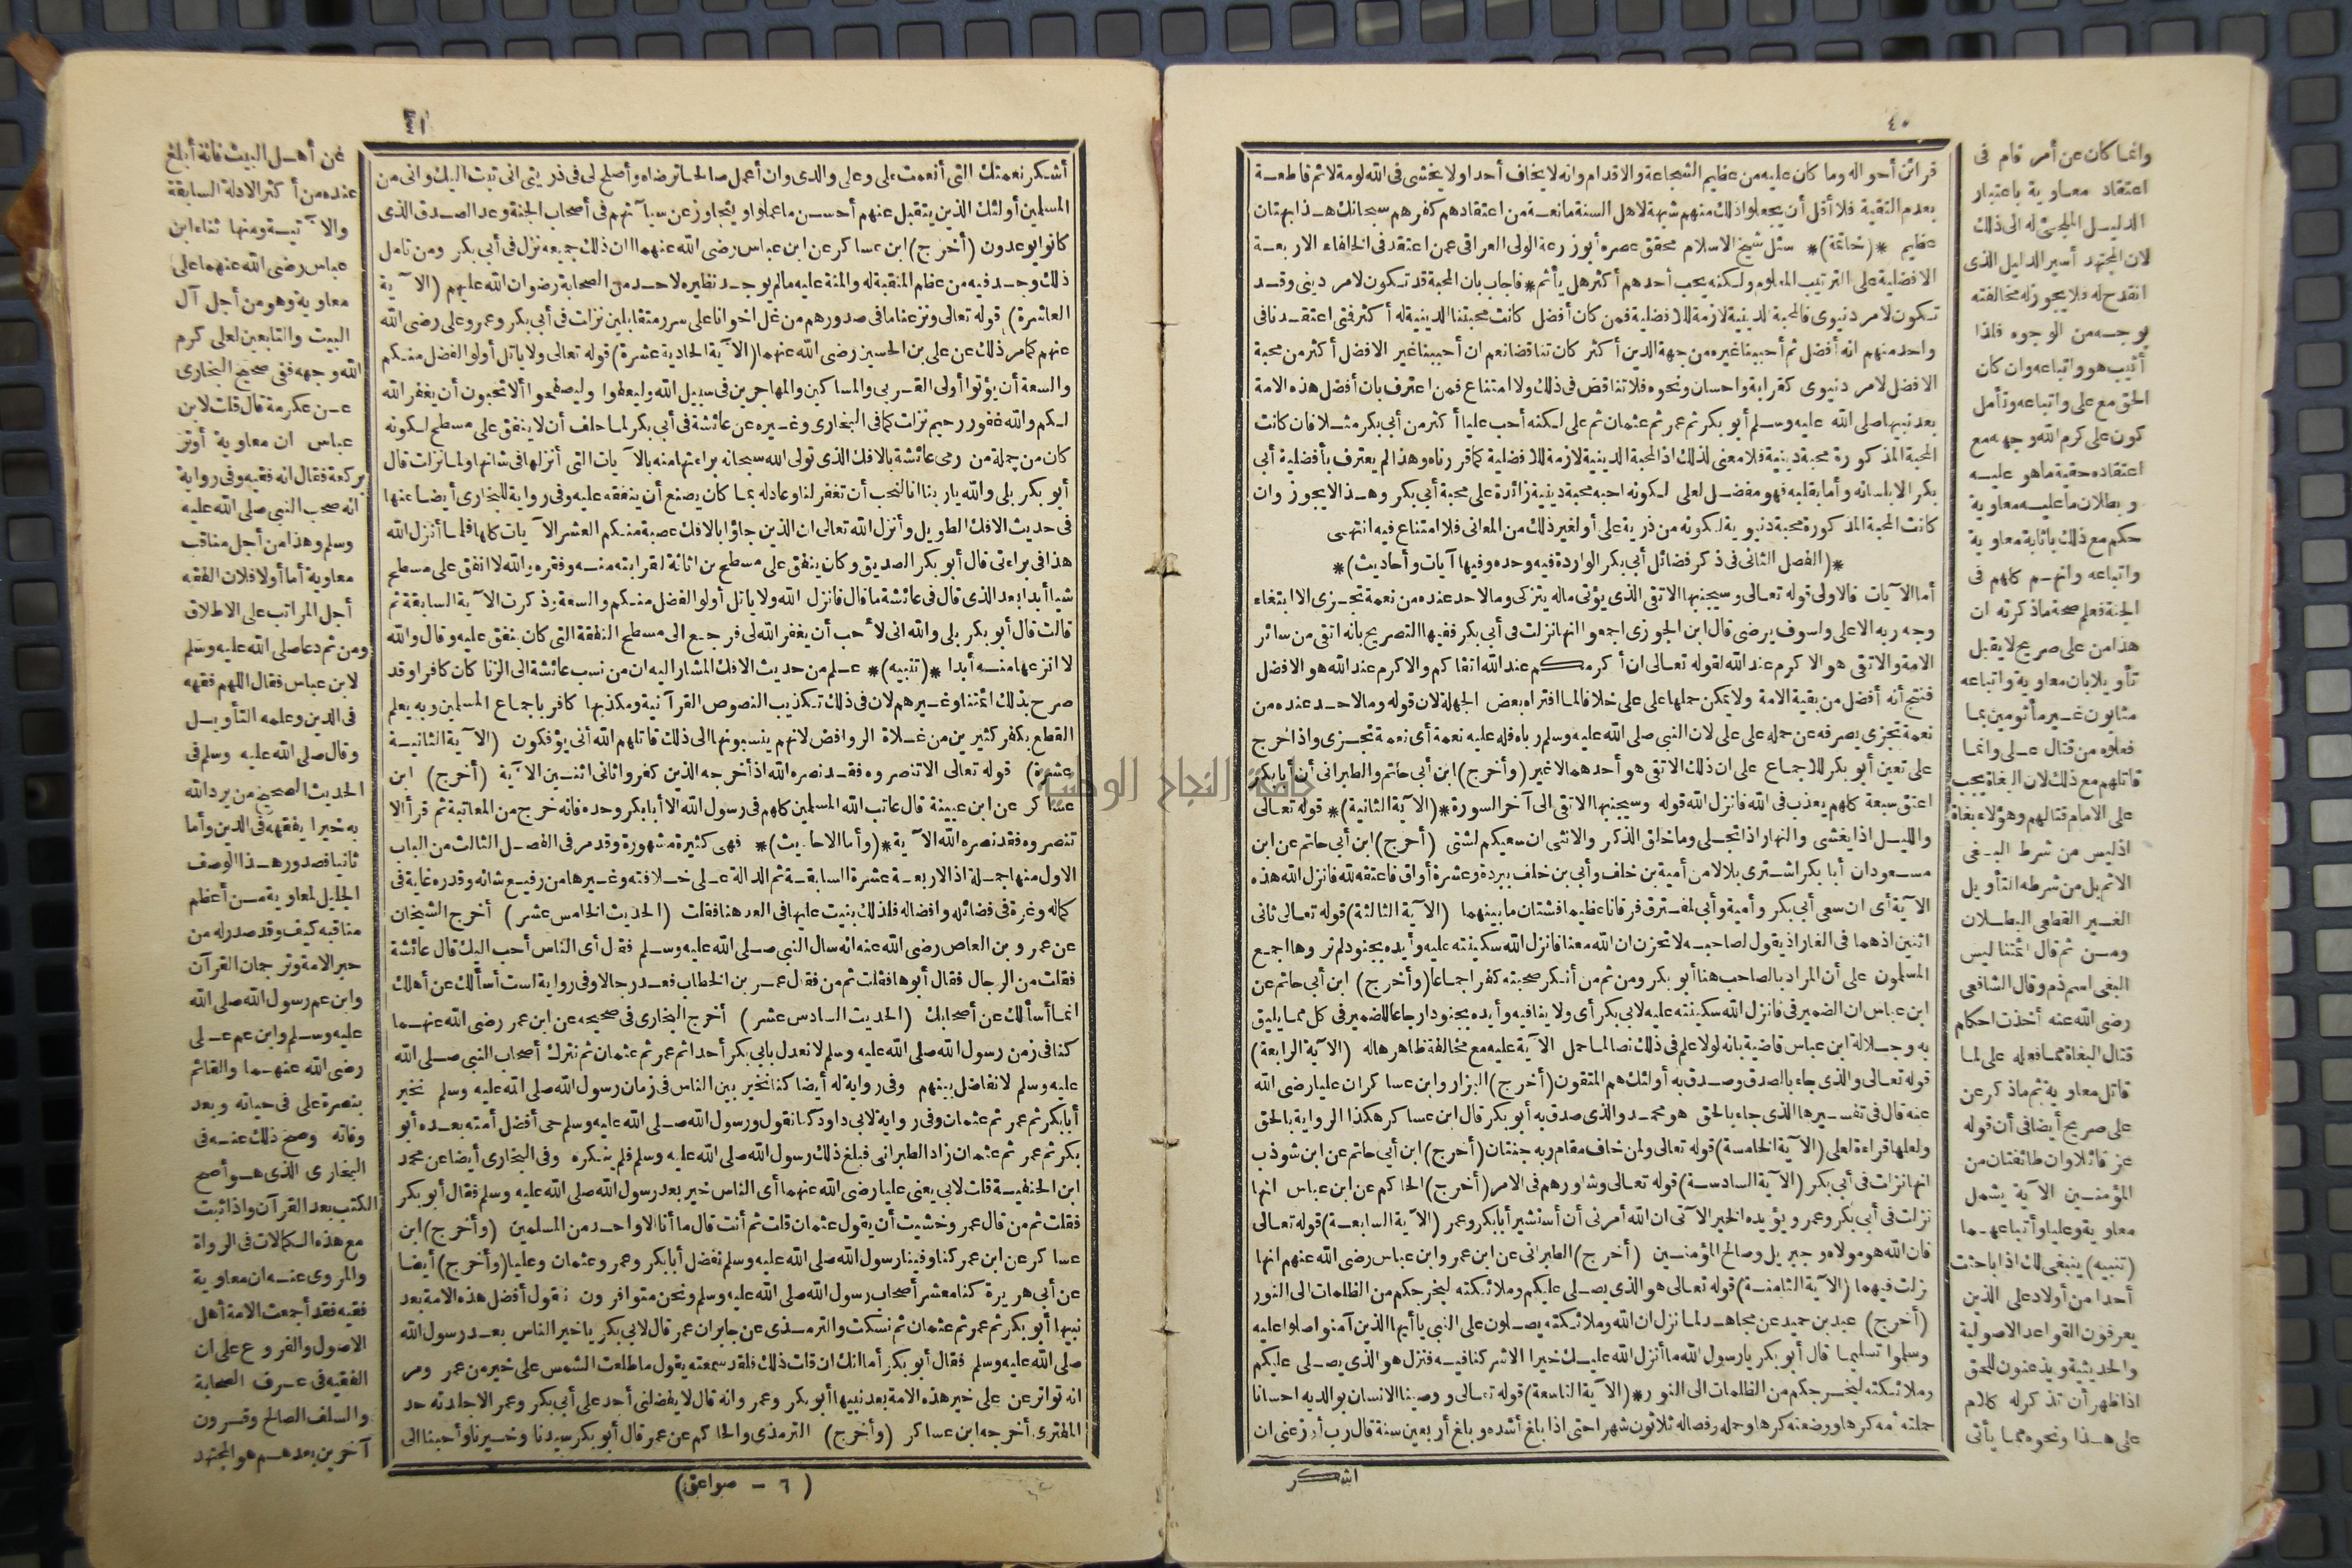 ٤٠
قرائن أحواله وما كان عليه من عظيم الشجاعة والاقدام وانه لا يخاف أحدا ولا يخشى فى الله لومة لائم قاطعة
بعدم التقية فلا أقل أن يجعلوا ذلك منهم شبهة لاهل السنة مانعة من اعتقادهم كفرهم سبحانك هذا بهتان
عظيم *(خاتمة)* سئل شيخ الاسلام محقق عصره أبو زرعة الولى العراقى عمن اعتقد فى الخلفاء الاربعة
الافضلية على الترتيب المعلوم ولكنه يحب أحدهم أكثر هل يأثم * فاجاب بان المحبة قد تكون لامر دينى وقد
تكون لامر دنيوى فالمحبة الدينية لازمة للافضلية فمن كان أفضل كانت محبتنا الدينية له أكثر فتى اعتقدنا فى
واحد منهم انه أفضل ثم أحببنا غيره من جهة الدين أكثر كان تناقضا نعم ان أحببنا غير الافضل أكثر من محبة
الافضل لامر دنيوى كقرابة واحسان ونحوه فلا تناقض فى ذلك ولا امتناع فمن اعترف بان أفضل هذه الامة
بعد نبيها صلى الله عليه وسلم أبو بكر ثم عمر ثم عثمان ثم على لكنه أحب عليا أكثر من أبى بكر مثلا فان كانت
المحبة المذكورة محبة دينية فلا معنى لذلك اذ المحبة الدينية لازمة للافضلية كما قررناه وهذا لم يعترف بأفضلية أبى
بكر الا بلسانه وأما بقلبه فهو مفضل لعلى لكونه احبه محبة دينية زائدة على محبة أبى بكر وهذا لا يجوز وان
كانت المحبة المذكورة محبة دنيوية لكونه من ذرية على أو لغير ذلك من المعانى فلا امتناع فيه انتهى
*(الفصل الثانى فى ذكر فضائل أبى بكر الواردة فيه وحده وفيها آيات وأحاديث)*
أما الآيات فالاولى قوله تعالى وسيجنبها الاتقى الذى يؤتى ماله يتزكى وما لاحد عنده من نعمة تجزى الا ابتغاء
وجه ربه الاعلى ولسوف يرضى قال ابن الجوزى اجمعوا انها نزلت فى أبى بكر ففيها التصريح بانه اتقى من سائر
الامة والاتقى هو الاكرم عند الله لقوله تعالى ان أكرمكم عند الله اتقاكم والاكرم عند الله هو الافضل
فنتج أنه أفضل من بقية الامة ولا يمكن حملها على على خلافا لما افتراه بعض الجهلة لان قوله وما لاحد عنده من
نعمة تجزى يصرفه عن حمله على على لان النبى صلى الله عليه وسلم رباه فله عليه نعمة أى نعمة تجزى واذا خرج
على تعين أبو بكر للاجماع على ان ذلك الاتقى هو أحدهما لا غير (وأخرج) ابن أبى حاتم والطبرانى أن أبا بكر
اعتق سبعة كلهم يعذب فى الله فانزل الله قوله وسيجنبها الاتقى الى آخر السورة *(الآية الثانية)* قوله تعالى
والليل اذا يغشى والنهار اذا تجلى وما خلق الذكر والانثى ان سعيكم لشتى (أخرج) ابن أبى حاتم عن ابن
مسعود ان أبا بكر اشترى بلالا من أمية بن خلف وأبى بن خلف ببردة وعشرة أواق فاعتقه لله فانزل الله هذه
الآية أى ان سعى أبى بكر وأمية وأبى لمفترق فرقانا عظيما فشتان ما بينهما (الآية الثالثة) قوله تعالى ثانى
اثنين اذ هما فى الغار اذ يقول لصاحبه لا تحزن ان الله معنا فانزل الله سكينته عليه وأيده بجنود لم تروها اجمع
المسلمون على أن المراد بالصاحب هنا أبو بكر ومن ثم من أنكر صحبته كفر اجماعا (وأخرج) ابن أبى حاتم عن
ابن عباس ان الضمير فى فانزل الله سكينته عليه لابى بكر أى ولا ينافيه وأيده بجنود ارجاعا للضمير فى كل مما يليق
به وجلالة ابن عباس قاضية بانه لولا علم فى ذلك نصا لما حمل الآية عليه مع مخالفة ظاهرها له (الآية الرابعة)
قوله تعالى والذى جاء بالصدق وصدق به أولئك هم المتقون (أخرج) البزار وابن عساكر ان عليا رضى الله
عنه قال فى تفسيرها الذى جاء بالحق هو محمد والذى صدق به أبو بكر قال ابن عساكر هكذا الرواية بالحق
ولعلها قراءة لعلى (الآية الخامسة) قوله تعالى ولمن خاف مقام ربه جنتان (أخرج) ابن أبى حاتم عن ابن شوذب
انها نزلت فى أبى بكر (الآية السادسة) قوله تعالى وشاورهم فى الامر (أخرج) الحاكم عن ابن عباس انها
نزلت فى أبى بكر وعمر ويؤيده الخبر الآتى ان الله أمرنى أن أستشير أبا بكر وعمر (الآية السابعة) قوله تعالى
فان الله هو مولاه وجبريل وصالح المؤمنين (أخرج) الطبرانى عن ابن عمر وابن عباس رضى الله عنهم انها
نزلت فيهما (الآية الثامنة) قوله تعالى هو الذى يصلى عليكم وملائكته ليخرجكم من الظلمات الى النور
(أخرج) عبد بن حميد عن مجاهد لما نزل ان الله وملائكته يصلون على النبى يا أيها الذين آمنوا صلوا عليه
وسلموا تسليما قال أبو بكر يا رسول الله ما أنزل الله عليك خيرا الا شركنا فيه فنزل هو الذى يصلى عليكم
وملائكته ليخرجكم من الظلمات الى النور *(الآية التاسعة) قوله تعالى ووصينا الانسان بوالديه احسانا
حملته أمه كرها ووضعته كرها وحمله وفصاله ثلاثون شهرا حتى اذا بلغ أشده وبلغ أربعين سنة قال رب أوزعنى ان
اشكر
وانما كان عن أمر قام فى
اعتقاد معاوية باعتبار
الدليل الملجئ له الى ذلك
لان المجتهد أسير الدليل الذى
انقدح له فلا يجوز له مخالفته
بوجه من الوجوه فلذا
أثيب هو واتباعه وان كان
الحق مع على واتباعه وتأمل
كون على كرم الله وجهه مع
اعتقاده حقية ما هو عليه
وبطلان ما عليه معاوية
حكم مع ذلك باثابة معاوية
واتباعه وانهم كلهم فى
الجنة فعلم صحة ما ذكرته ان
هذا من على صريح لا يقبل
تأويلا بان معاوية واتباعه
مثابون غير مأثومين بما
فعلوه من قتال على وانما
قاتلهم مع ذلك لان البغاة يجب
على الامام قتالهم وهؤلاء بغاة
اذ ليس من شرط البغى
الاثم بل من شرطه التأويل
الغير القطعى البطلان
ومن ثم قال ائمتنا ليس
البغى اسم ذم وقال الشافعى
رضى الله عنه أخذت احكام
قتال البغاة مما فعله على لما
قاتل معاوية ثم ما ذكر عن
على صريح أيضا فى أن قوله
عز قائلا وان طائفتان من
المؤمنين الآية يشمل
معاوية وعليا وأتباعهما
(تنبيه) ينبغى لك اذا باحثت
أحدا من أولاد على الذين
يعرفون القواعد الاصولية
والحديثية ويذعنون للحق
اذا ظهر أن تذكر له كلام
على هذا ونحوه مما يأتى
٤١
أشكر نعمتك التى أنعمت على وعلى والدى وان أعمل صالحا ترضاه وأصلح لى فى ذريتى انى تبت اليك وانى من
المسلمين أولئك الذين يتقبل عنهم أحسن ما عملوا ويتجاوز عن سيآتهم فى أصحاب الجنة وعد الصدق الذى
كانوا يوعدون (أخرج) ابن عساكر عن ابن عباس رضى الله عنهما ان ذلك جميعه نزل فى أبى بكر ومن تامل
ذلك وجد فيه من عظم المنقبة له والمنة عليه ما لم يوجد نظيره لاحد من الصحابة رضوان الله عليهم (الآية
العاشرة) قوله تعالى ونزعنا ما فى صدورهم من غل اخوانا على سرر متقابلين نزلت فى أبى بكر وعمر وعلى رضى الله
عنهم كما مر ذلك عن على بن الحسين رضى الله عنهما (الآية الحادية عشرة) قوله تعالى ولا يأتل أولو الفضل منكم
والسعة أن يؤتوا أولى القربى والمساكين والمهاجرين فى سبيل الله وليعفوا وليصفحوا ألا تحبون أن يغفر الله
لكم والله غفور رحيم نزلت كما فى البخارى وغيره عن عائشة فى أبى بكر لما حلف أن لا ينفق على مسطح لكونه
كان من جملة من رمى عائشة بالافك الذى تولى الله سبحانه براءتها منه بالآيات التى أنزلها فى شانها ولما نزلت قال
أبو بكر بلى والله يا ربنا انا لنحب أن تغفر لنا وعاد له بما كان يصنع أى ينفقه عليه وفى رواية للبخارى أيضا عنها
فى حديث الافك الطويل وأنزل الله تعالى ان الذين جاؤا بالافك عصبة منكم العشر الآيات كلها فلما أنزل الله
هذا فى براءتى قال أبو بكر الصديق وكان ينفق على مسطح بن اثاثة لقرابته منه وفقره والله لا انفق على مسطح
شيأ أبدا بعد الذى قال فى عائشة ما قال فانزل الله ولا يأتل أولو الفضل منكم والسعة وذكرت الآية السابقة ثم
قالت قال أبو بكر بلى والله انى لأحب أن يغفر الله لى فرجع الى مسطح النفقة التى كان ينفق عليه وقال والله
لا انزعها منه أبدا *(تنبيه)* علم من حديث الافك المشار اليه ان من نسب عائشة الى الزنا كان كافرا وقد
صرح بذلك ائمتنا وغيرهم لان فى ذلك تكذيب النصوص القرآنية ومكذبها كافر باجماع المسلمين وبه يعلم
القطع بكفر كثيرين من غلاة الروافض لانهم ينسبونها الى ذلك قاتلهم الله أنى يؤفكون (الآية الثانية
عشرة) قوله تعالى الا تنصروه فقد نصره الله اذ أخرجه الذين كفروا ثانى اثنين الآية (أخرج) ابن
عساكر عن ابن عيينة قال عاتب الله المسلمين كلهم فى رسول الله الا أبا بكر وحده فانه خرج من المعاتبة ثم قرأ الا
تنصروه فقد نصره الله الآية *(وأما الاحاديث)* فهى كثيرة مشهورة وقد مر فى الفصل الثالث من الباب
الاول منها جملة اذ الاربعة عشرة السابقة ثم الدالة على خلافته وغيرها من رفيع شانه وقدره غاية فى
كماله وغرة فى فضائله وافضاله فلذلك بنيت عليها فى العد هنا فقلت (الحديث الخامس عشر) أخرج الشيخان
عن عمرو بن العاص رضى الله عنه انه سال النبى صلى الله عليه وسلم فقال أى الناس أحب اليك قال عائشة
فقلت من الرجال فقال أبوها فقلت ثم من فقال عمر بن الخطاب فعد رجالا وفى رواية لست أسألك عن أهلك
انما أسألك عن أصحابك (الحديث السادس عشر) أخرج البخارى فى صحيحه عن ابن عمر رضى الله عنهما
كنا فى زمن رسول الله صلى الله عليه وسلم لا نعدل بابى بكر أحدا ثم عمر ثم عثمان ثم نترك أصحاب النبى صلى الله
عليه وسلم لا نفاضل بينهم وفى رواية له أيضا كنا نخير بين الناس فى زمان رسول الله صلى الله عليه وسلم نخير
أبا بكر ثم عمر ثم عثمان وفى رواية لابى داود كنا نقول ورسول الله صلى الله عليه وسلم حى أفضل أمته بعده أبو
بكر ثم عمر ثم عثمان زاد الطبرانى فبلغ ذلك رسول الله صلى الله عليه وسلم فلم ينكره وفى البخارى أيضا عن محمد
ابن الحنفية قلت لابى يعنى عليا رضى الله عنهما أى الناس خير بعد رسول الله صلى الله عليه وسلم فقال أبو بكر
فقلت ثم من قال عمر وخشيت أن يقول عثمان قلت ثم أنت قال ما أنا الا واحد من المسلمين (وأخرج) ابن
عساكر عن ابن عمر كنا وفينا رسول الله صلى الله عليه وسلم نفضل أبا بكر وعمر وعثمان وعليا (وأخرج) أيضا
عن أبى هريرة كنا معشر أصحاب رسول الله صلى الله عليه وسلم ونحن متوافرون نقول أفضل هذه الامة بعد
نبيها أبو بكر ثم عمر ثم عثمان ثم نسكت والترمذى عن جابر ان عمر قال لابى بكر يا خير الناس بعد رسول الله
صلى الله عليه وسلم فقال أبو بكر أما انك ان قلت ذلك فلقد سمعته يقول ما طلعت الشمس على خير من عمر ومر
انه تواتر عن على خير هذه الامة بعد نبيها أبو بكر وعمر وانه قال لا يفضلنى أحد على أبى بكر وعمر الا جلدته حد
المفترى أخرجه ابن عساكر (وأخرج) الترمذى والحاكم عن عمر قال أبو بكر سيدنا وخيرنا وأحبنا الى
(٦ - صواعق)
عن أهل البيت فانه أبلغ
عنده من أكثر الادلة السابقة
والآتية ومنها ثناء ابن
عباس رضى الله عنهما على
معاوية وهو من أجل آل
البيت والتابعين لعلى كرم
الله وجهه ففى صحيح البخارى
عن عكرمة قال قلت لابن
عباس ان معاوية أوتر
بركعة فقال انه فقيه وفى رواية
انه صحب النبى صلى الله عليه
وسلم وهذا من أجل مناقب
معاوية أما أولا فلان الفقه
أجل المراتب على الاطلاق
ومن ثم دعا صلى الله عليه وسلم
لابن عباس فقال اللهم فقهه
فى الدين وعلمه التأويل
وقال صلى الله عليه وسلم فى
الحديث الصحيح من يرد الله
به خيرا يفقهه فى الدين وأما
ثانيا فصدور هذا الوصف
الجليل لمعاوية من أعظم
مناقبه كيف وقد صدر له من
حبر الامة وترجمان القرآن
وابن عم رسول الله صلى الله
عليه وسلم وابن عم على
رضى الله عنهما والقائم
بنصرة على فى حياته وبعد
وفاته وصح ذلك عنه فى
البخارى الذى هو أصح
الكتب بعد القرآن واذا ثبت
مع هذه الكمالات فى الرواة
والمروى عنه ان معاوية
فقيه فقد أجمعت الامة أهل
الاصول والفروع على ان
الفقيه فى عرف الصحابة
والسلف الصالح وقرون
آخرين بعدهم هو المجتهد
جامعة النجاح الوطنية